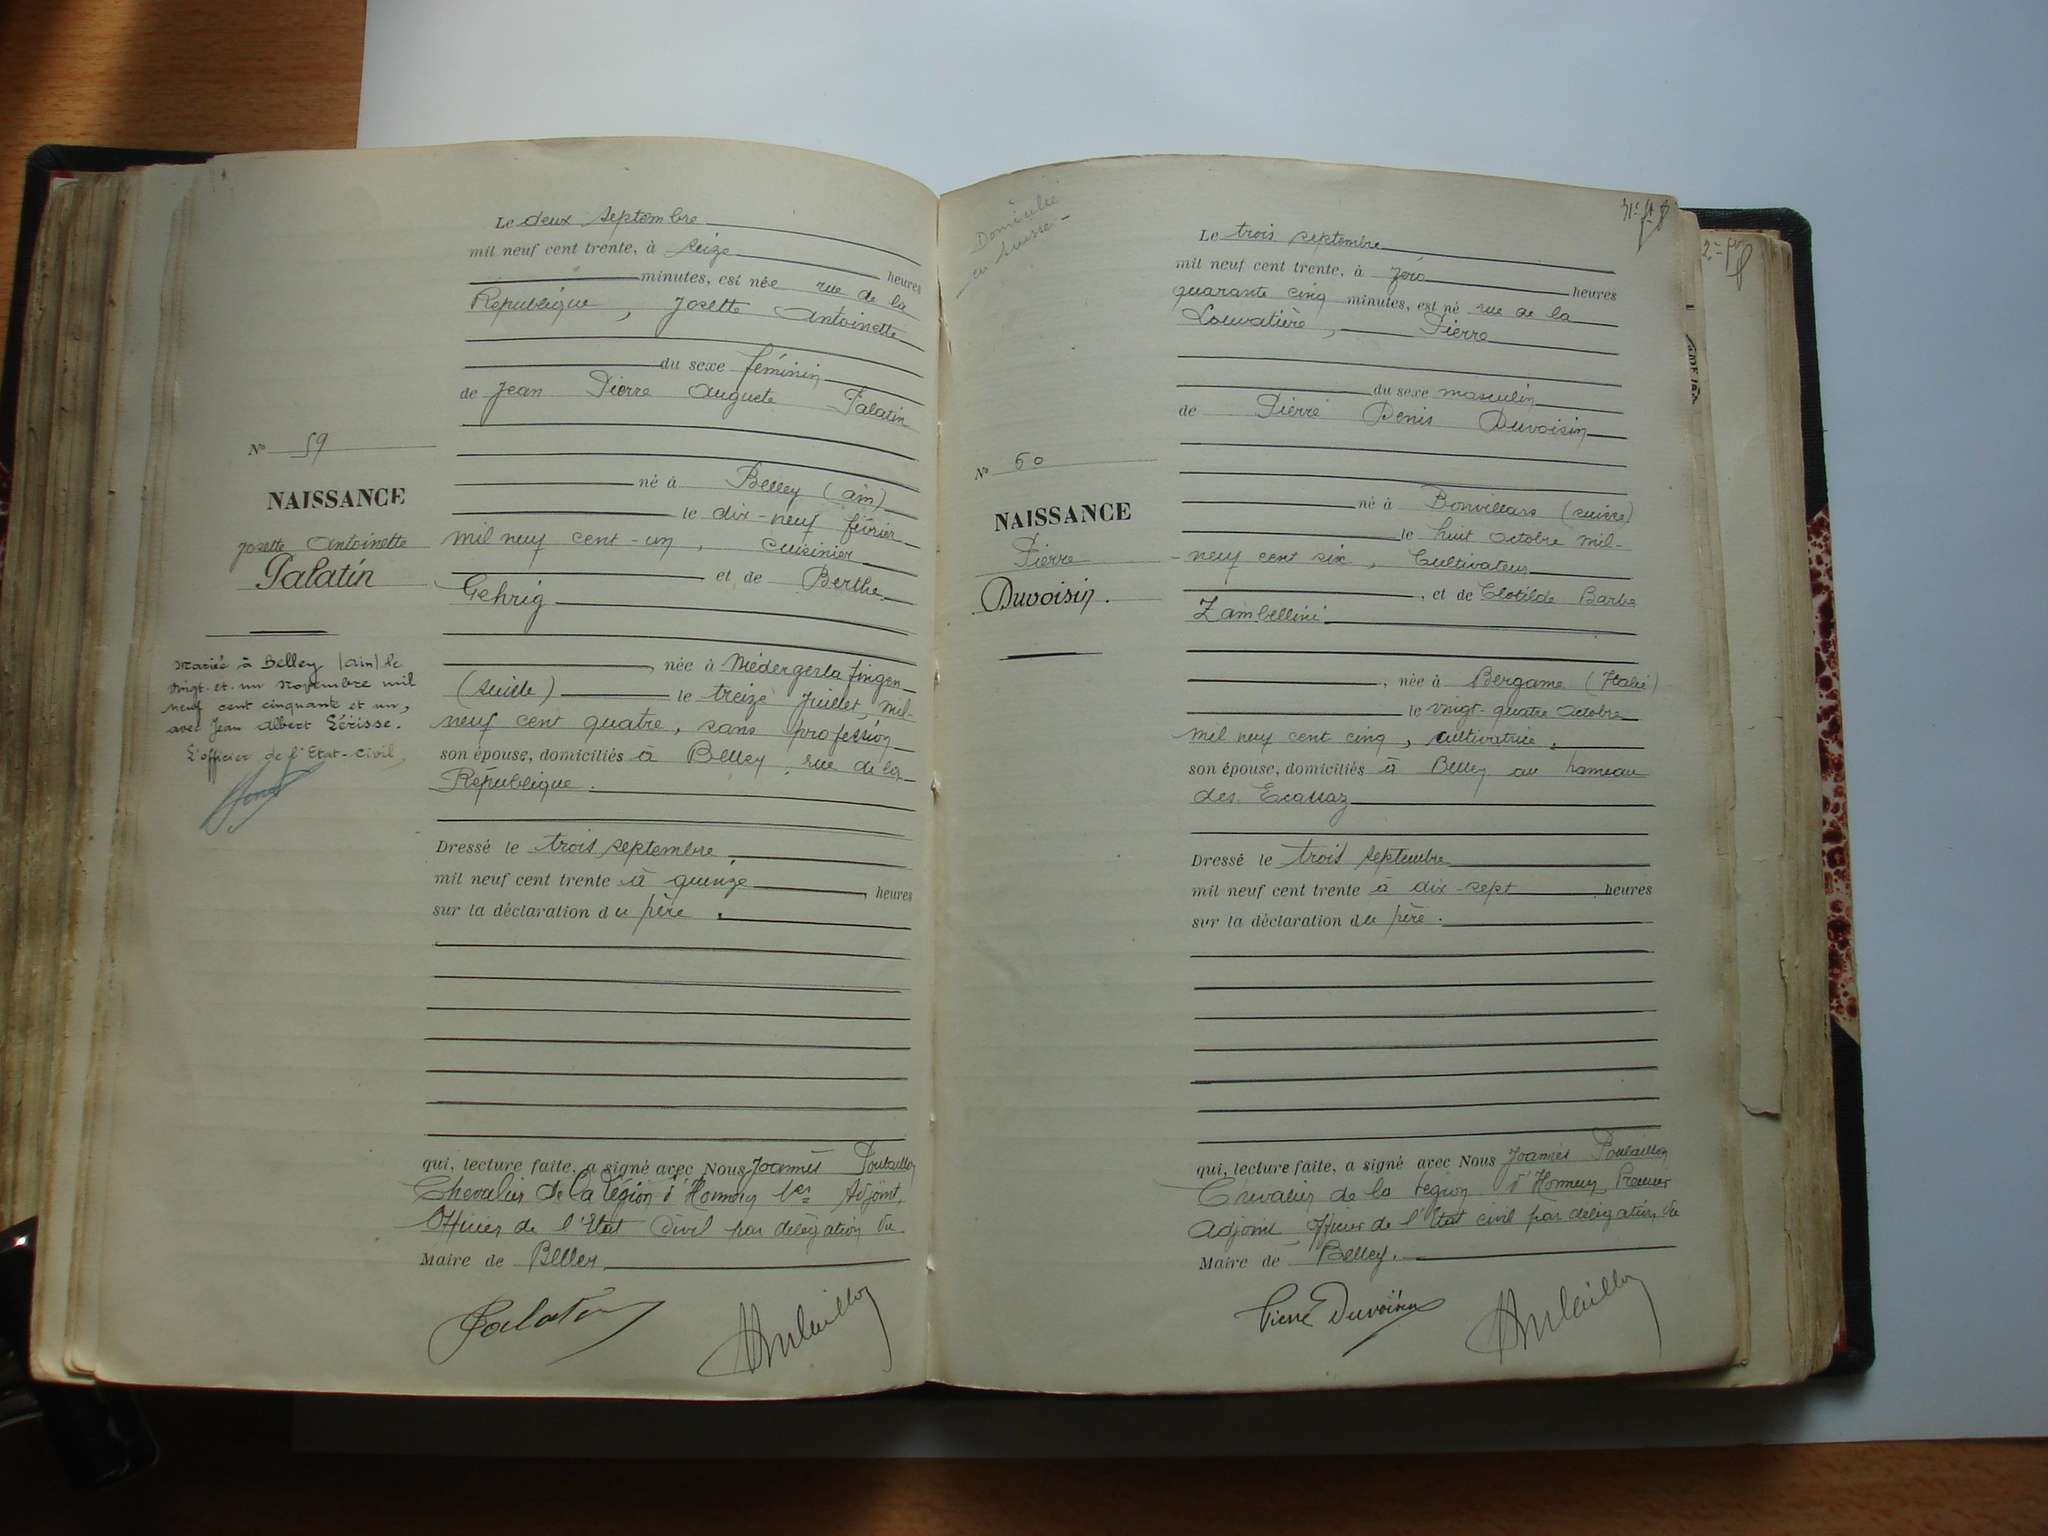 Le deux septembre
mil neuf cent trente, à seize heures
minutes, est née rue de la
République, Josette Antoinette
du sexe féminin
de Jean Pierre Auguste Palatin
né à Belley (Ain)
le dix-neuf février
mil neuf cent-un, cuisinier
et de Berthe
Gehrig
, née à
(Suisse) le treize Juillet, mil-
neuf cent quatre, sans profession
son épouse, domiciliés à Belley, rue de la
République.
Dressé le trois septembre,
mil neuf cent trente à quinze, heures
sur la déclaration du père.
qui, lecture faite, a signé avec Nous Joannès Poulaillon
Chevalier de la légion d'Honneur 1er Adjoint,
Officier de l'Etat Civil par délégation du
Maire de Belley
Palatin
Poulaillon
No 59
NAISSANCE
Josette Antoinette
Palatin
Mariée à Belley (Ain) le
vingt-et-un novembre mil
neuf cent cinquante et un,
avec Jean Albert
L'officier de l'Etat-Civil,
Domiciliés
en Suisse
Le trois septembre
mil neuf cent trente, à zéro heures
quarante cinq minutes, est né rue de la
Louvatière, Pierre
du sexe masculin
de Pierre Denis Duvoisin
né à Bonvillars (Suisse)
le huit octobre mil-
neuf cent six, Cultivateur
, et de Clotilde Barbe
Zambellini
, née à Bergame (Italie)
le vingt-quatre octobre
mil neuf cent cinq, cultivatrice,
son épouse, domiciliés à Belley au hameau
des Ecassaz
Dressé le trois septembre
mil neuf cent trente à dix-sept heures
sur la déclaration du père.
qui, lecture faite, a signé avec Nous Joannès Poulaillon
Chevalier de la légion d'Honneur Premier
Adjoint, officier de l'Etat civil par délégation du
Maire de Belley.
Pierre Duvoisin
Poulaillon
No 60
NAISSANCE
Pierre
Duvoisin.